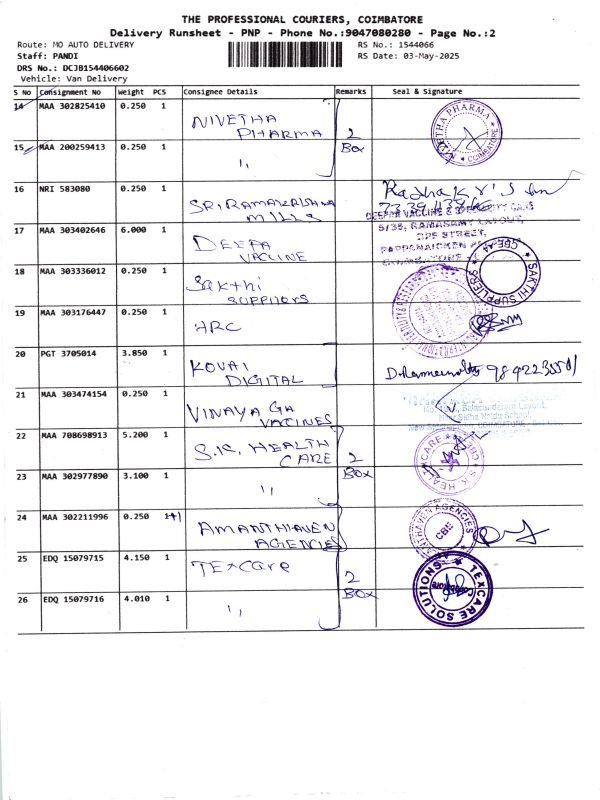 THE PROFESSIONAL COURIERS, COIMBATORE
Delivery Runsheet - PNP - Phone No.:9047080280 - Page No.:2
Route: MO AUTO DELIVERY
RS No.: 1544066
Staff: PANDI
RS Date: 03-May-2025
DRS No.: DCJB154406602
Vehicle: Van Delivery
S No Consignment No Weight PCS Consignee Details Remarks Seal & Signature
14 MAA 302825410 0.250 1 NIVETHA PHARMA 2 Box
COIMBATORE
15 MAA 200259413 0.250 1 ",
16 NRI 583080 0.250 1 SRI RAMAKRISHNA MILLS
17 MAA 303402646 6.000 1 DEEPA VACCINE
DEEPAM VACCINE &
5/35, RAMASAMY LAYOUT,
OPP STREET,
PAPPANAICKEN
18 MAA 303336012 0.250 1 Sakthi SUPPLIORS
SAKTHI SUPPLIERS CBE
19 MAA 303176447 0.250 1 HRC
20 PGT 3705014 3.850 1 KOVAI DIGITAL
21 MAA 303474154 0.250 1 VINAYAGA VACCINES
22 MAA 708698913 5.200 1 S.K. HEALTH CARE 2 Box
S.K HEALTHCARE CBE
23 MAA 302977890 3.100 1 ",
24 MAA 302211996 0.250 1+1 AMANTHAVEN AGENCIES
AGENCIES CBE
25 EDQ 15079715 4.150 1 TExcare 2 Box
TEXCARE SOLUTIONS Coimbatore
26 EDQ 15079716 4.010 1 ",